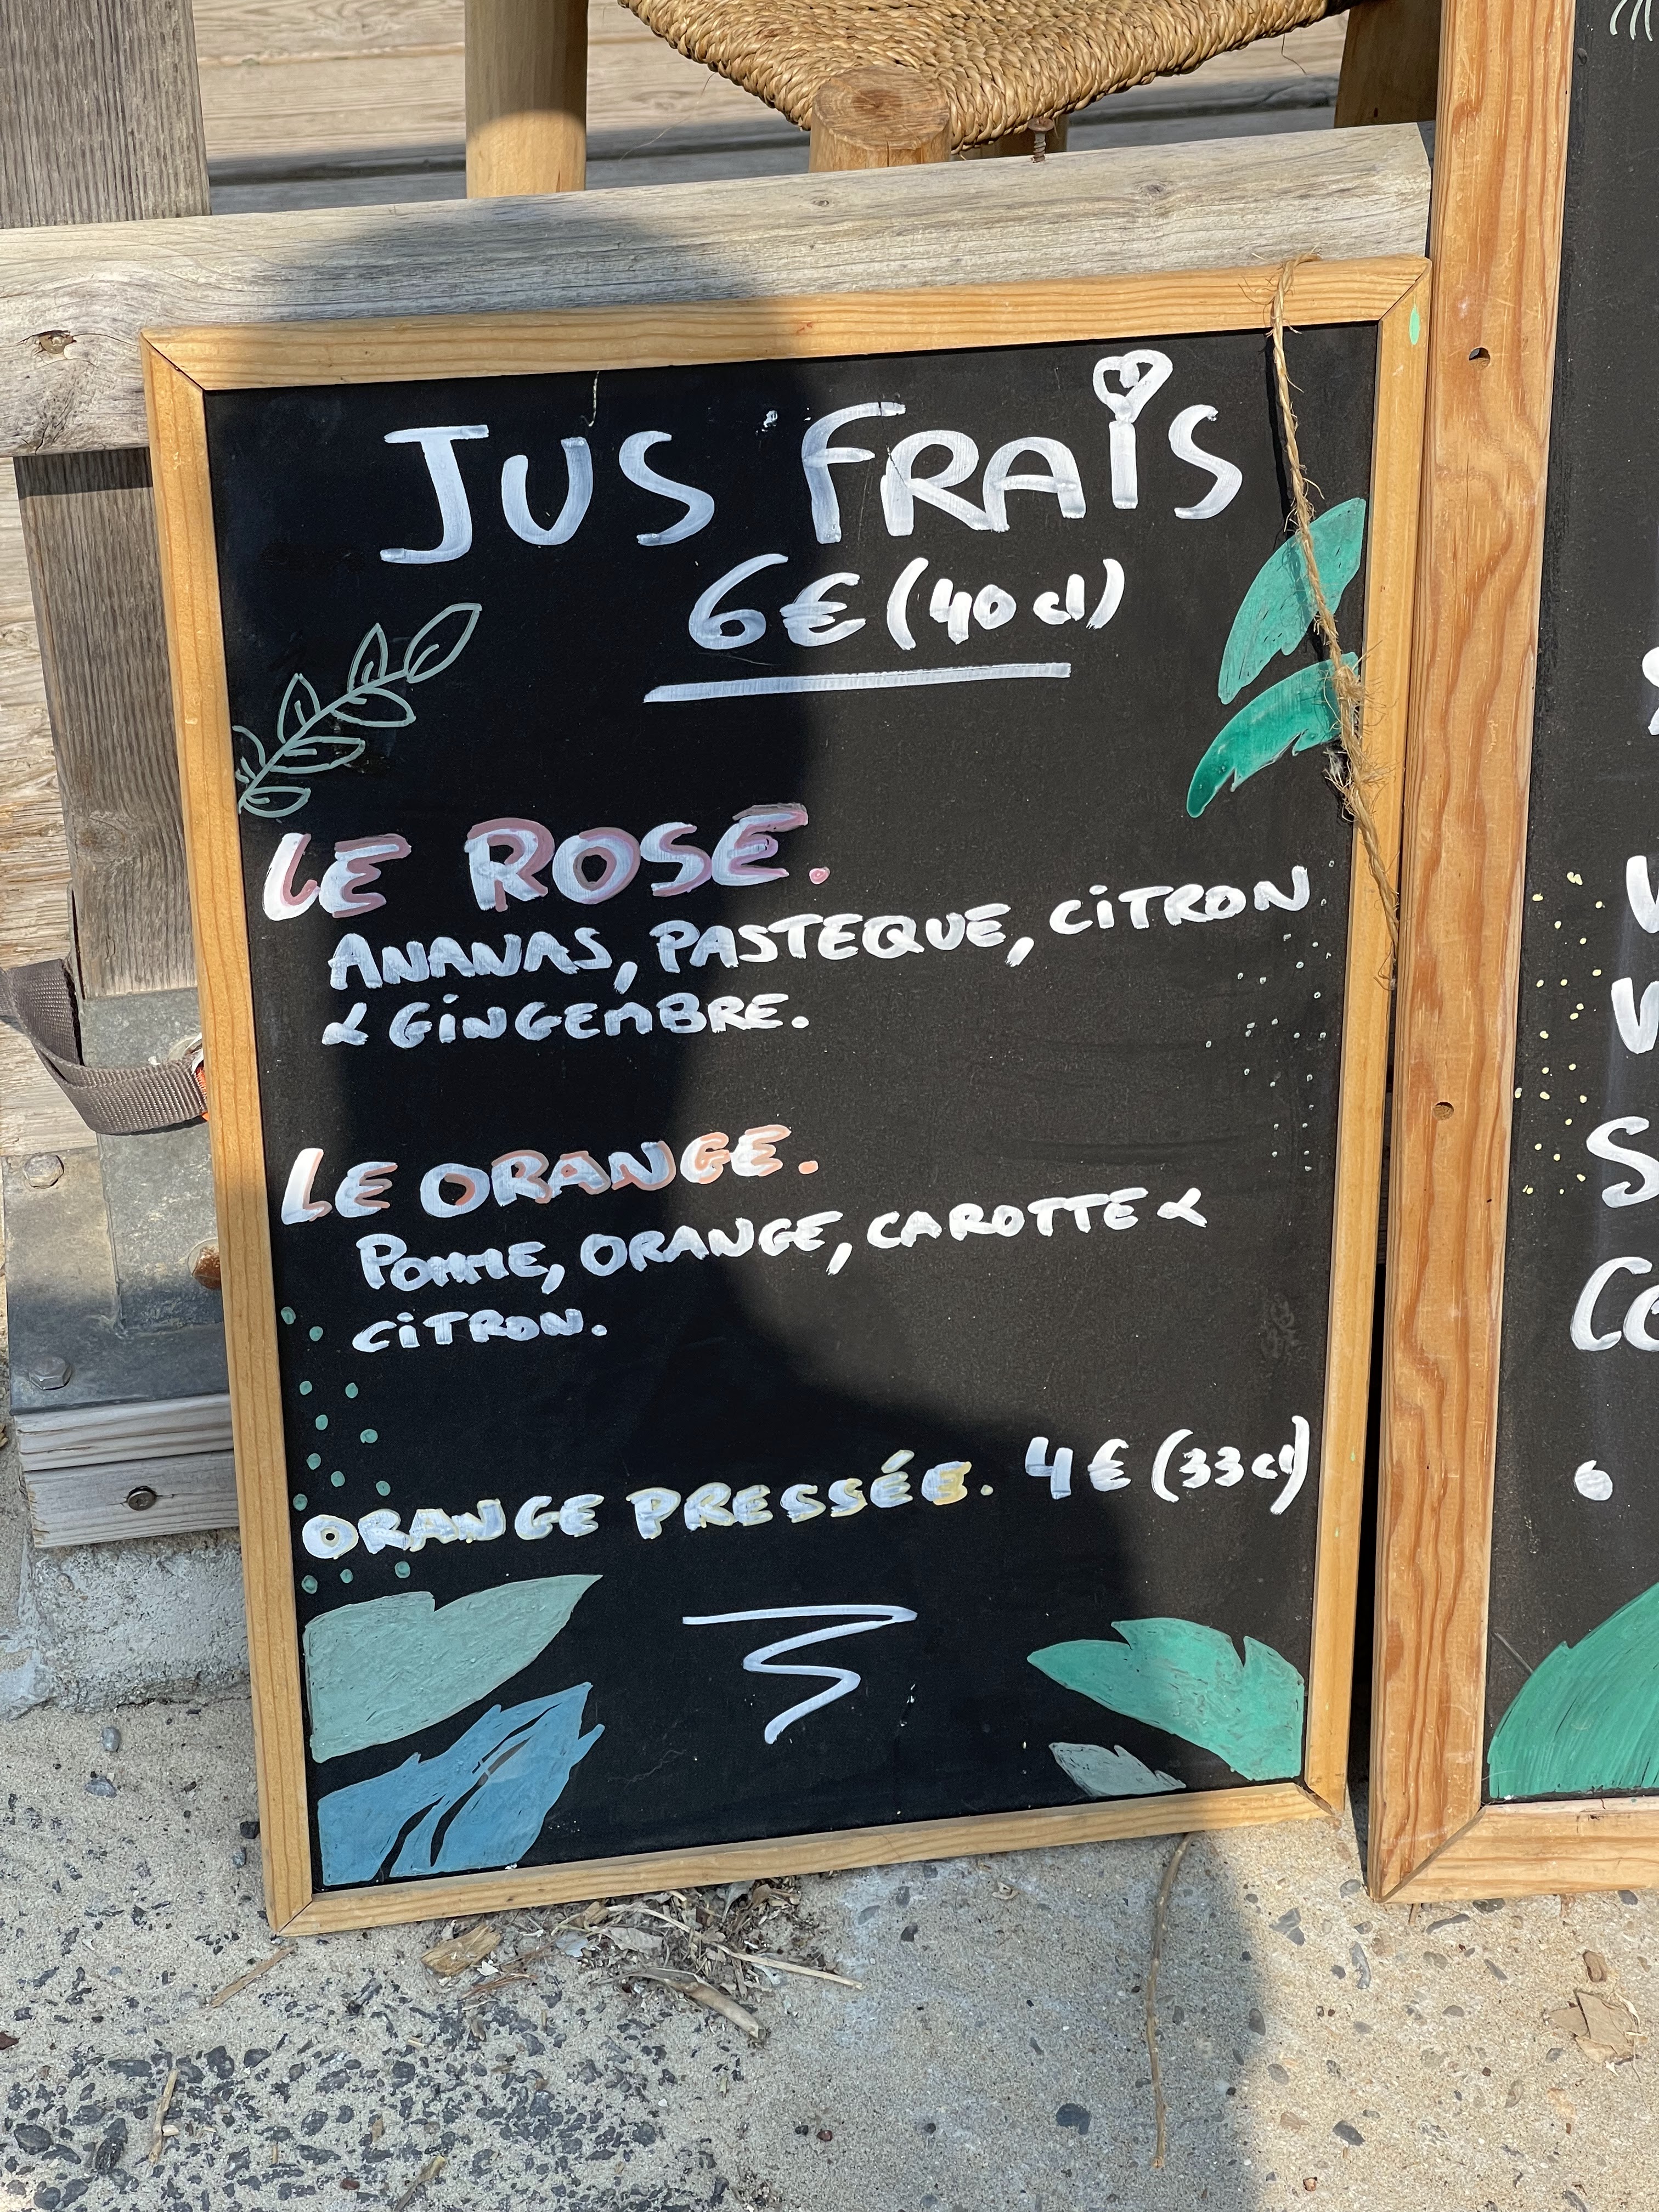 JUS FRAIS
6€ (40 cl)
LE ROSE.
ANANAS, PASTEQUE, CITRON
& GINGEMBRE.
LE ORANGE.
POMME, ORANGE, CAROTTE &
CITRON.
ORANGE PRESSÉE. 4€ (33 cl)